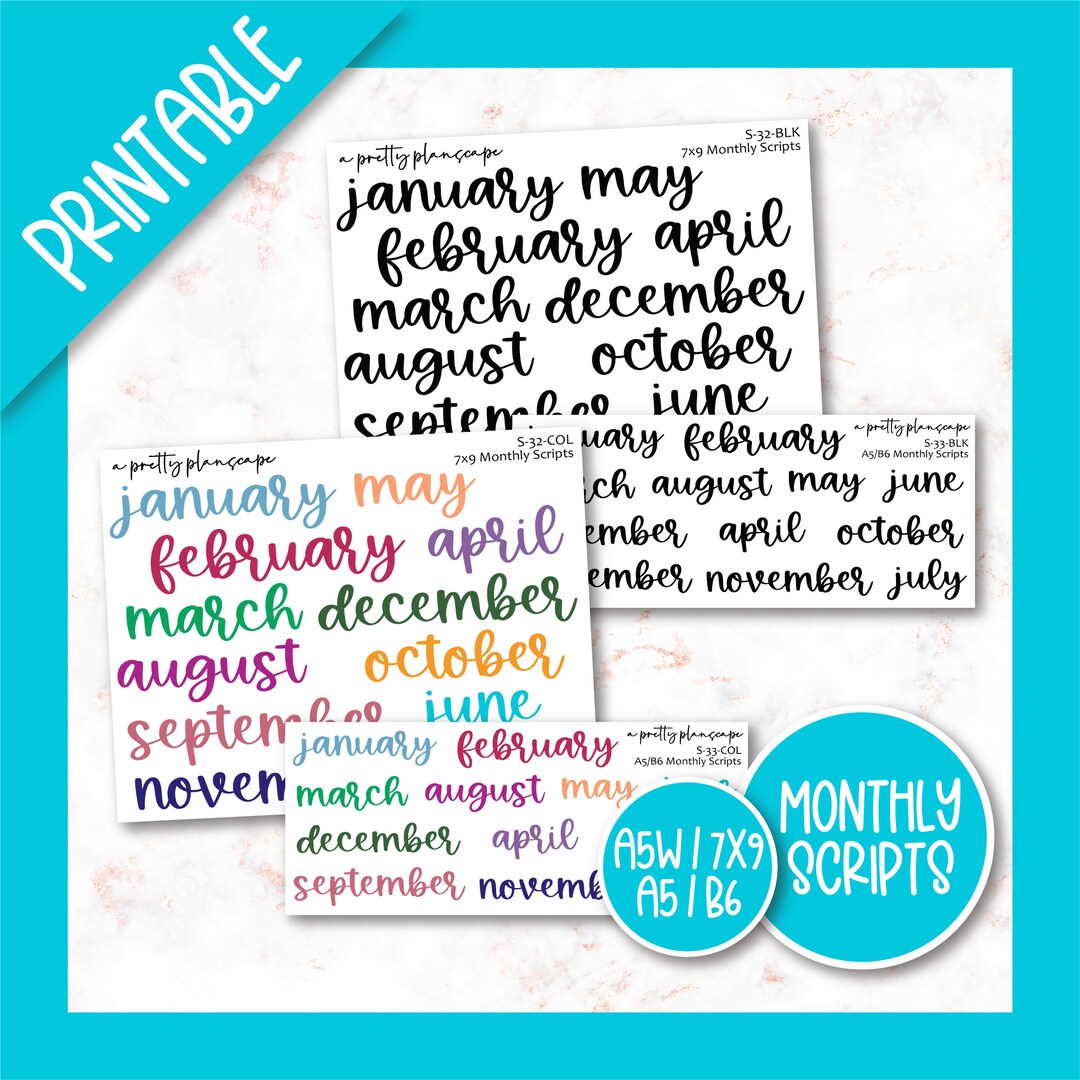 PRINTABLE
a pretty planscape
S-32-BLK
7x9 Monthly Scripts
january may
february april
march december
august october
september june
a pretty planscape
S-33-BLK
A5/B6 Monthly Scripts
uary february
rch august may june
ember april october
ember november july
a pretty planscape
S-32-COL
7x9 Monthly Scripts
january may
february april
march december
august october
september june
novem
a pretty planscape
S-33-COL
A5/B6 Monthly Scripts
january february
march august may
december april
september novemb
A5W / 7X9
A5 / B6
MONTHLY
SCRIPTS